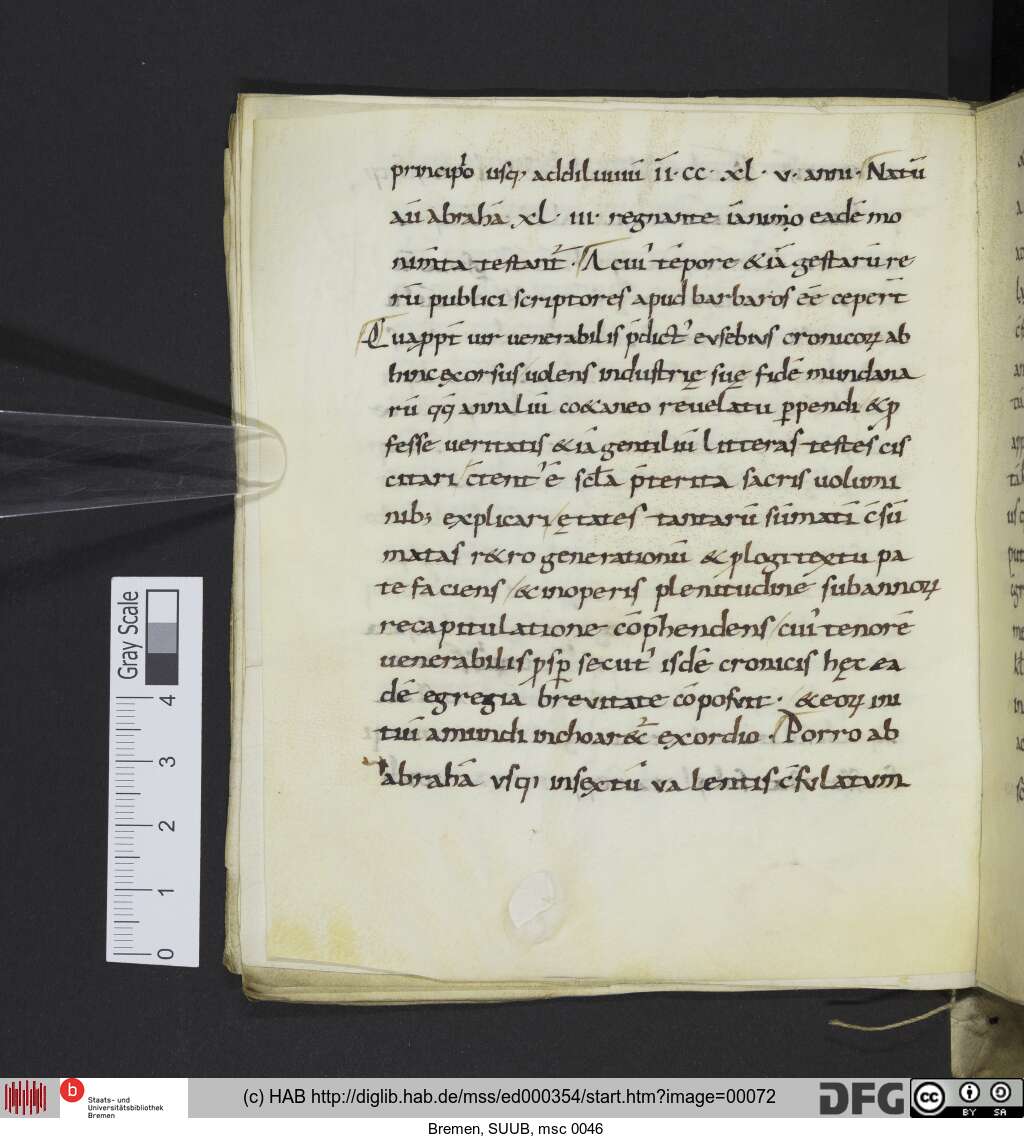 principio usq; addiluuiū ĪĪ·CC·XL·V·anni·Natū
aū abrahā XL·III·regnante ianino eadē mo
nim̄ta testant᷑·A cui᷒ tēpore &iā gestarū re
rū publici scriptores apud barbaros eē ceper̄t
Quappt̄ uir uenerabilis p̄dict᷒ eusebius cronicoꝝ ab
hinc ęxorsus uolens industrię suę fidē mundana
rū qq̄ annaliū co&aneo reuelatu ꝑpendi &ꝓ
fesse ueritatis &iā gentiliū litteras testes cis
citari c̄tent᷒ ē scl̄a p̄terita sacris uolumi
nib; explicari ętates tantarū sūmati c̄sū
matas r&ro generationū &plogi textu pa
tefaciens / &inoperis plenitudinē subannoꝝ
recapitulatione cōp̄hendens / cui᷒ tenorē
uenerabilis ꝓsꝑ secut᷒ isdē cronicis hęc ea
dē egregia breuitate cōposuit· &eoꝝ ini
tiū amundi inchoar&᷑ exordio·Porro ab
abrahā usq; insextū ualentis c̄sulatum
Gray Scale
4
3
2
1
0
b
Staats- und
Universitätsbibliothek
Bremen
(c) HAB http://diglib.hab.de/mss/ed000354/start.htm?image=00072
DFG
cc
BY SA
Bremen, SUUB, msc 0046